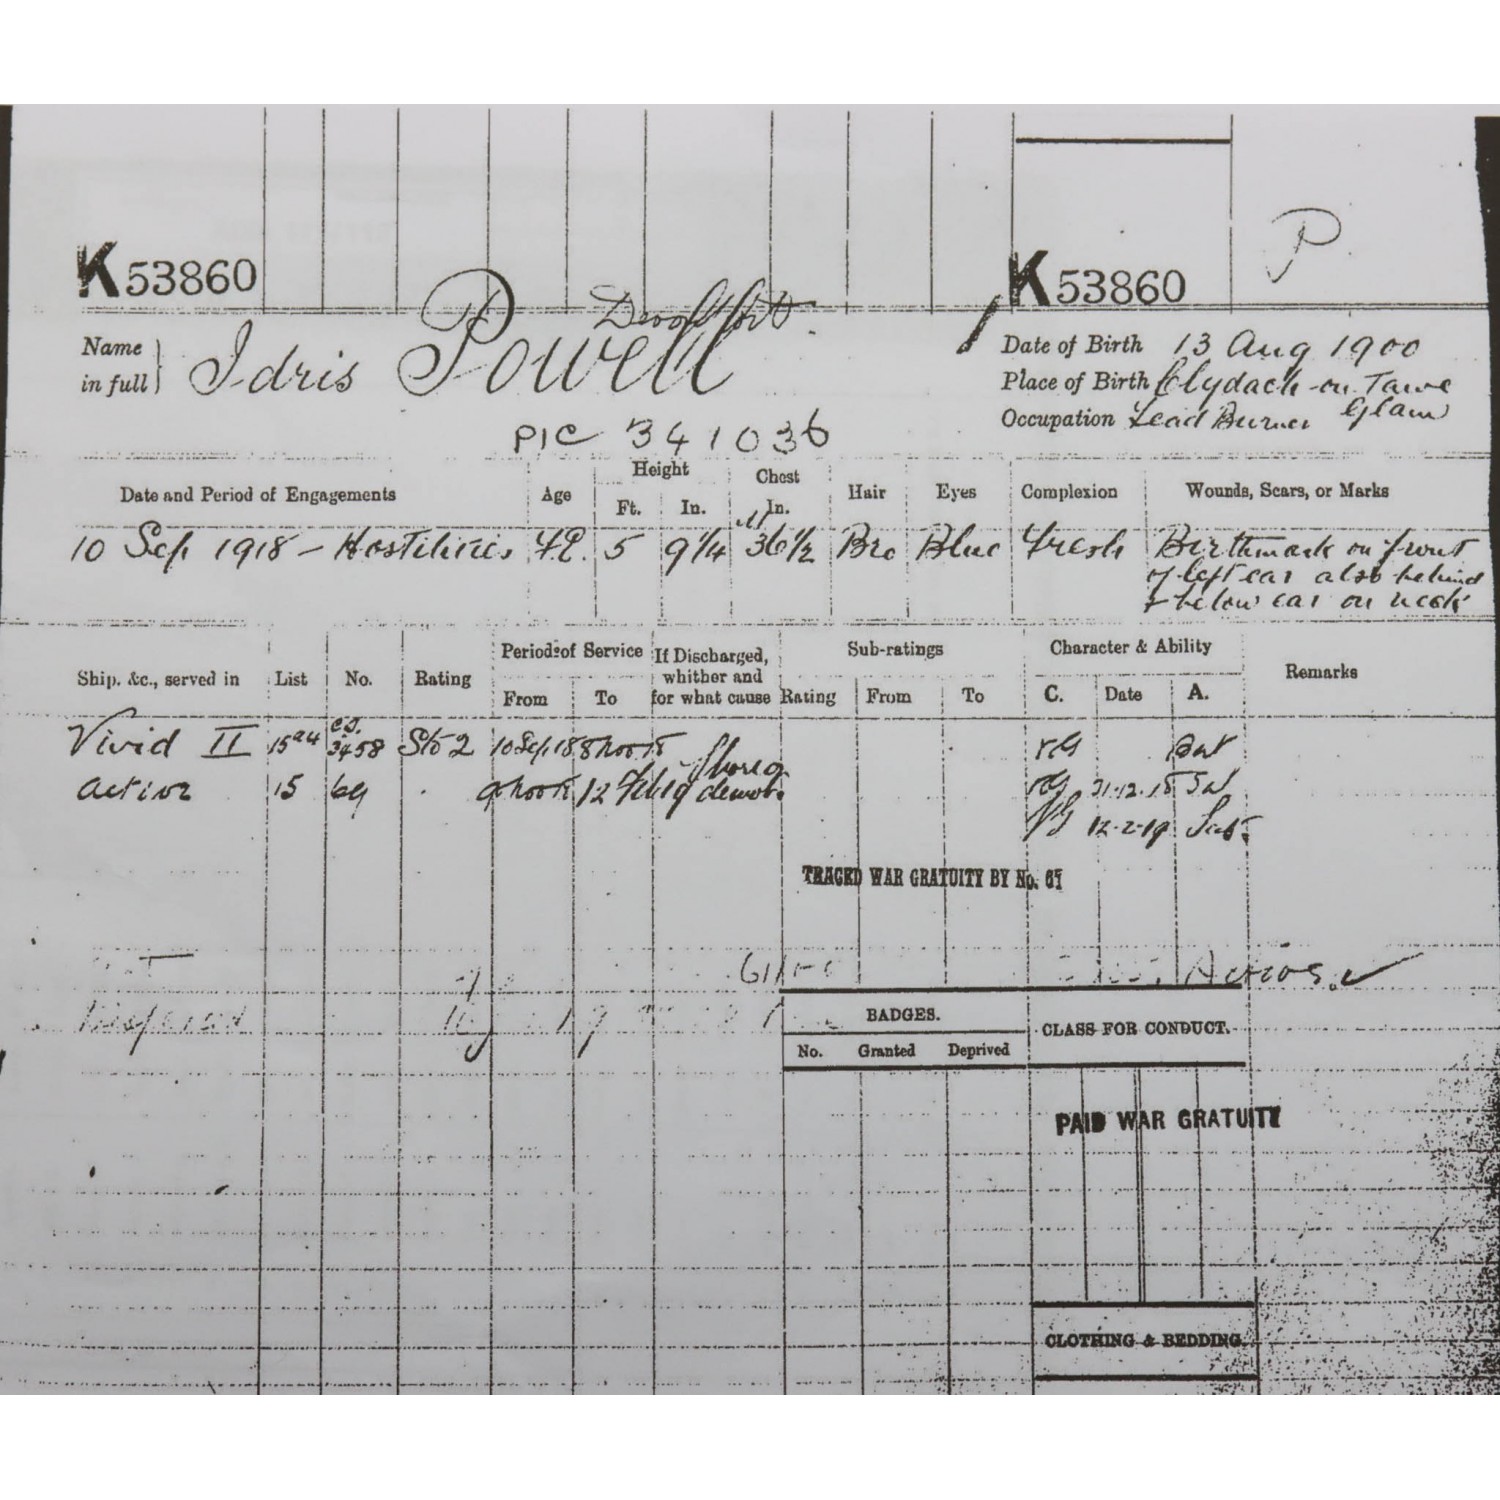 P
K 53860 K 53860
Devonport
Name in full } Idris Powell
Date of Birth 13 Aug 1900
Place of Birth Clydach-on-Tawe
Glam
Occupation Lead Burner
P/C 341036
Date and Period of Engagements Age Height Ft. In. Chest In. Hair Eyes Complexion Wounds, Scars, or Marks
10 Sep 1918 - Hostilities 5 9 1/4 36 1/2 Bro Blue Fresh Birthmark on front
of left ear also behind
& below ear on neck
Ship, &c., served in List No. Rating Periods of Service From To If Discharged, whither and for what cause Sub-ratings Rating From To Character & Ability C. Date A. Remarks
Vivid II 3458 Sto 2 10 Sep 18 8 Nov 18 VG Sat
Active 15 69 9 Nov 18 12 Feb 19 Shore demob. VG 31-12-18 Sat
VG 12-2-19 Sat.
TRACED WAR GRATUITY BY No. 67
BADGES.
No. Granted Deprived
CLASS FOR CONDUCT.
PAID WAR GRATUITY
CLOTHING & BEDDING.